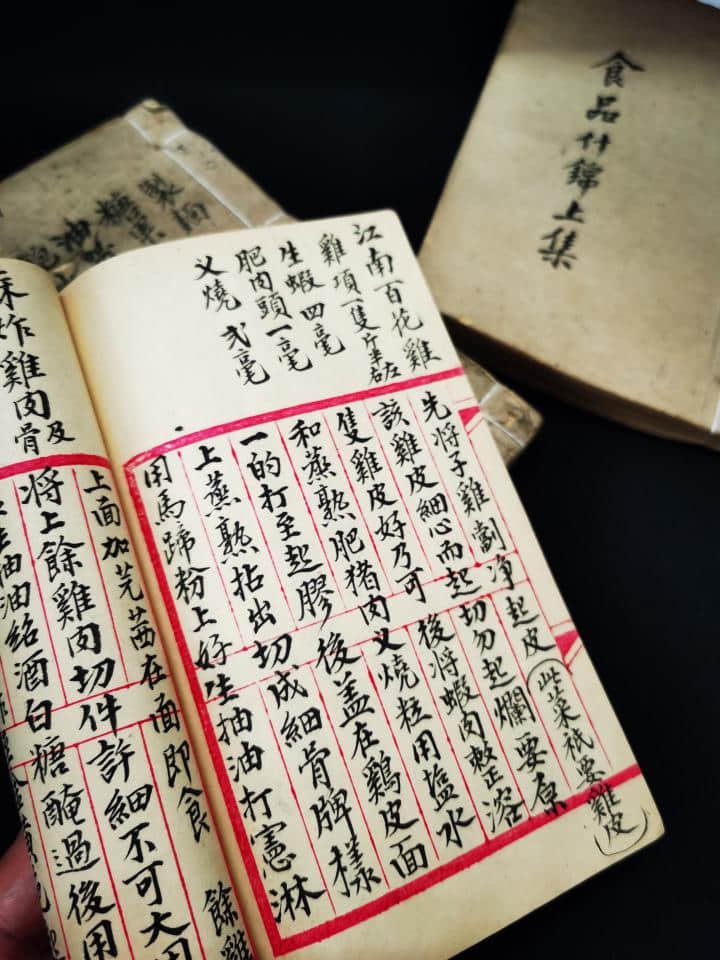 食品什錦上集
糖菓
油
江南百花雞
雞項一隻斤半左右
生蝦 四毫
肥肉頭一毫
义燒 弍毫
先将子雞劏净起皮(此菜祗要雞皮)
該雞皮細心而起切勿起爛要原
隻雞皮好乃可後将蝦肉攪至溶
和蒸熟肥猪肉义燒粒用塩水
一的打至起膠後盖在鷄皮面
上蒸熟拈出切成細骨牌樣
用馬蹄粉上好生抽油打憲淋
上面加芫茜在面即食 餘雞
炸雞肉及骨
将上餘雞肉切件許細不可大用
生抽油紹酒白糖醃過後用